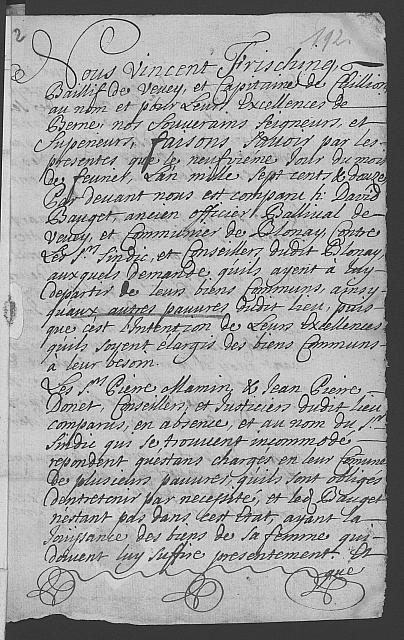 192.
2
Nous Vincent Frisching,
Baillif de Vevey, et Capitaine de Chillion,
au nom et pour Leurs Excellences de
Berne, nos Souverains Seigneurs, et
Superieurs, faisons, Scavoir par les
presentes que le neufvieme Jour du mois
de fevrier, L'an mille sept cents & douze
Par devant nous est comparu h: David
Bauget, ancien officier Ballival de
Vevey, et Communier de Blonay, contre
Les Srs Sindic, et Conseillers dudit Blonay,
auxquels demande, quils ayent à luy
departir de leurs biens Communs, ainsy
quaux autres pauvres dudit lieu, puis
que cest l'intention de Leurs Excellences
quils soyent elargis des biens Communs
a leur besoin.
Les Srs Pierre Mamin, & Jean Pierre
Donet, Conseillers, et Justiciers dudit lieu
comparus, en absence, et au nom du Sr
Sindic qui se trouvent incommodé
repondent questans chargés en leur Comune
de plusieurs pauvres, quils sont obligés
d'entretenir par necessité, et led Bauget
n'estant pas dans cest Estat, ayant la
Jouissance des biens de sa femme qui
doivent luy suffire presentement Et
que